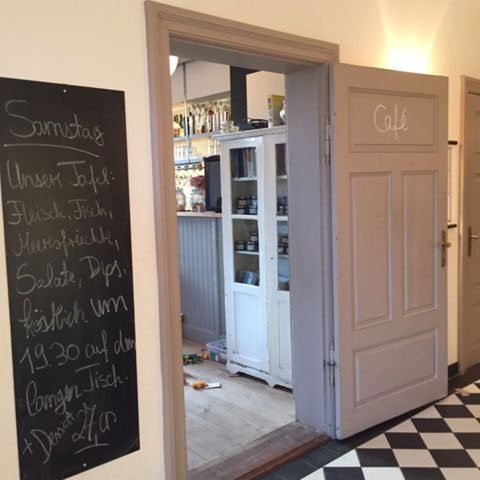 Samstag
Unsere Tafel:
Fleisch, Fisch,
Meeresfrüchte,
Salate, Dips,
köstlich um
19.30 auf dem
langen Tisch.
+ Dessert 27,00
Café